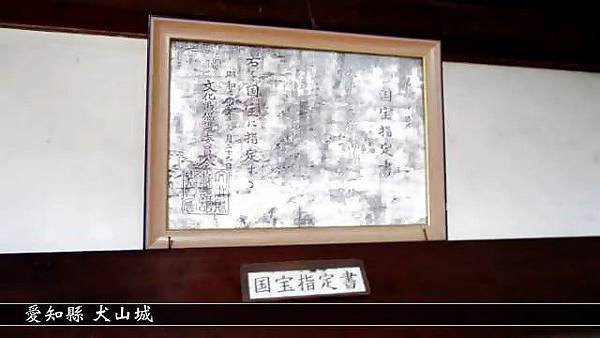 国宝指定書
右を国宝に指定する
文化財保護委員会
国宝指定書
愛知縣 犬山城